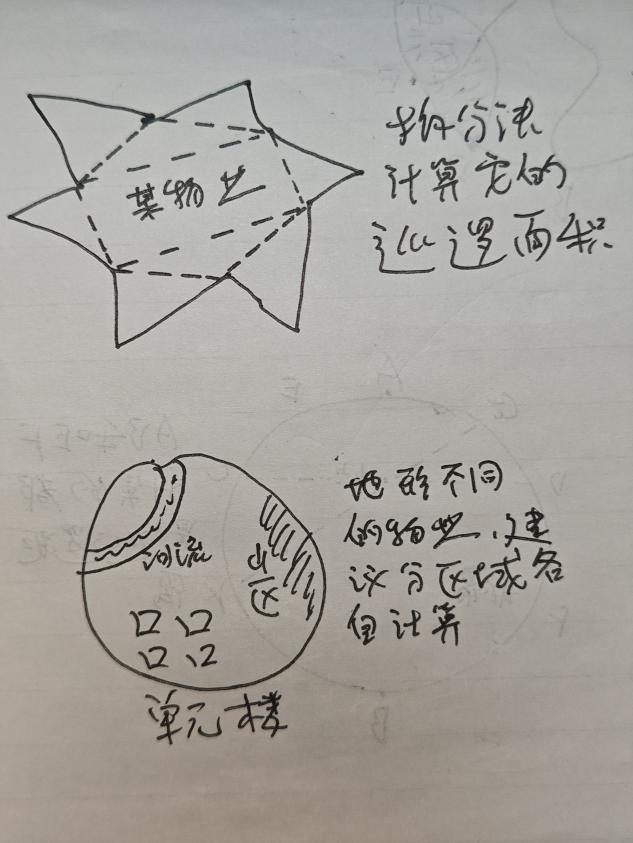 某物业
拆分法
计算它的
巡逻面积
河流
山区
单元楼
地形不同
的物业,建
议分区域各
自计算